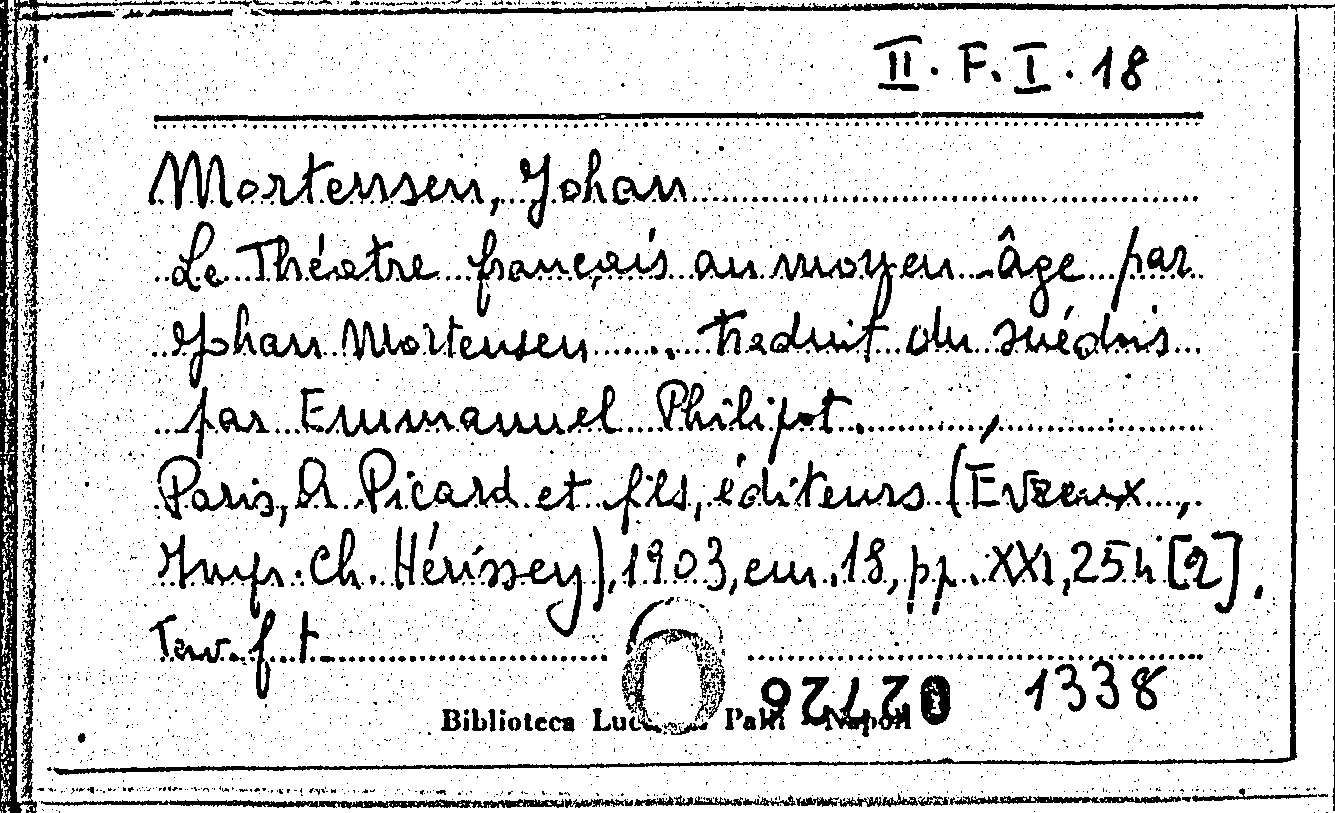 II. F. I. 18
Mortensen, Johan
Le Théatre français au moyen-âge par
Johan Mortensen ...... traduit du suédois
par Emmanuel Philipot. ,
Paris, A Picard et fils, éditeurs (Evreux ,
Imp. Ch. Hérissey), 1903, em. 18, pp. XXI, 254 [2].
Tav. f t
1338
Biblioteca Napoli